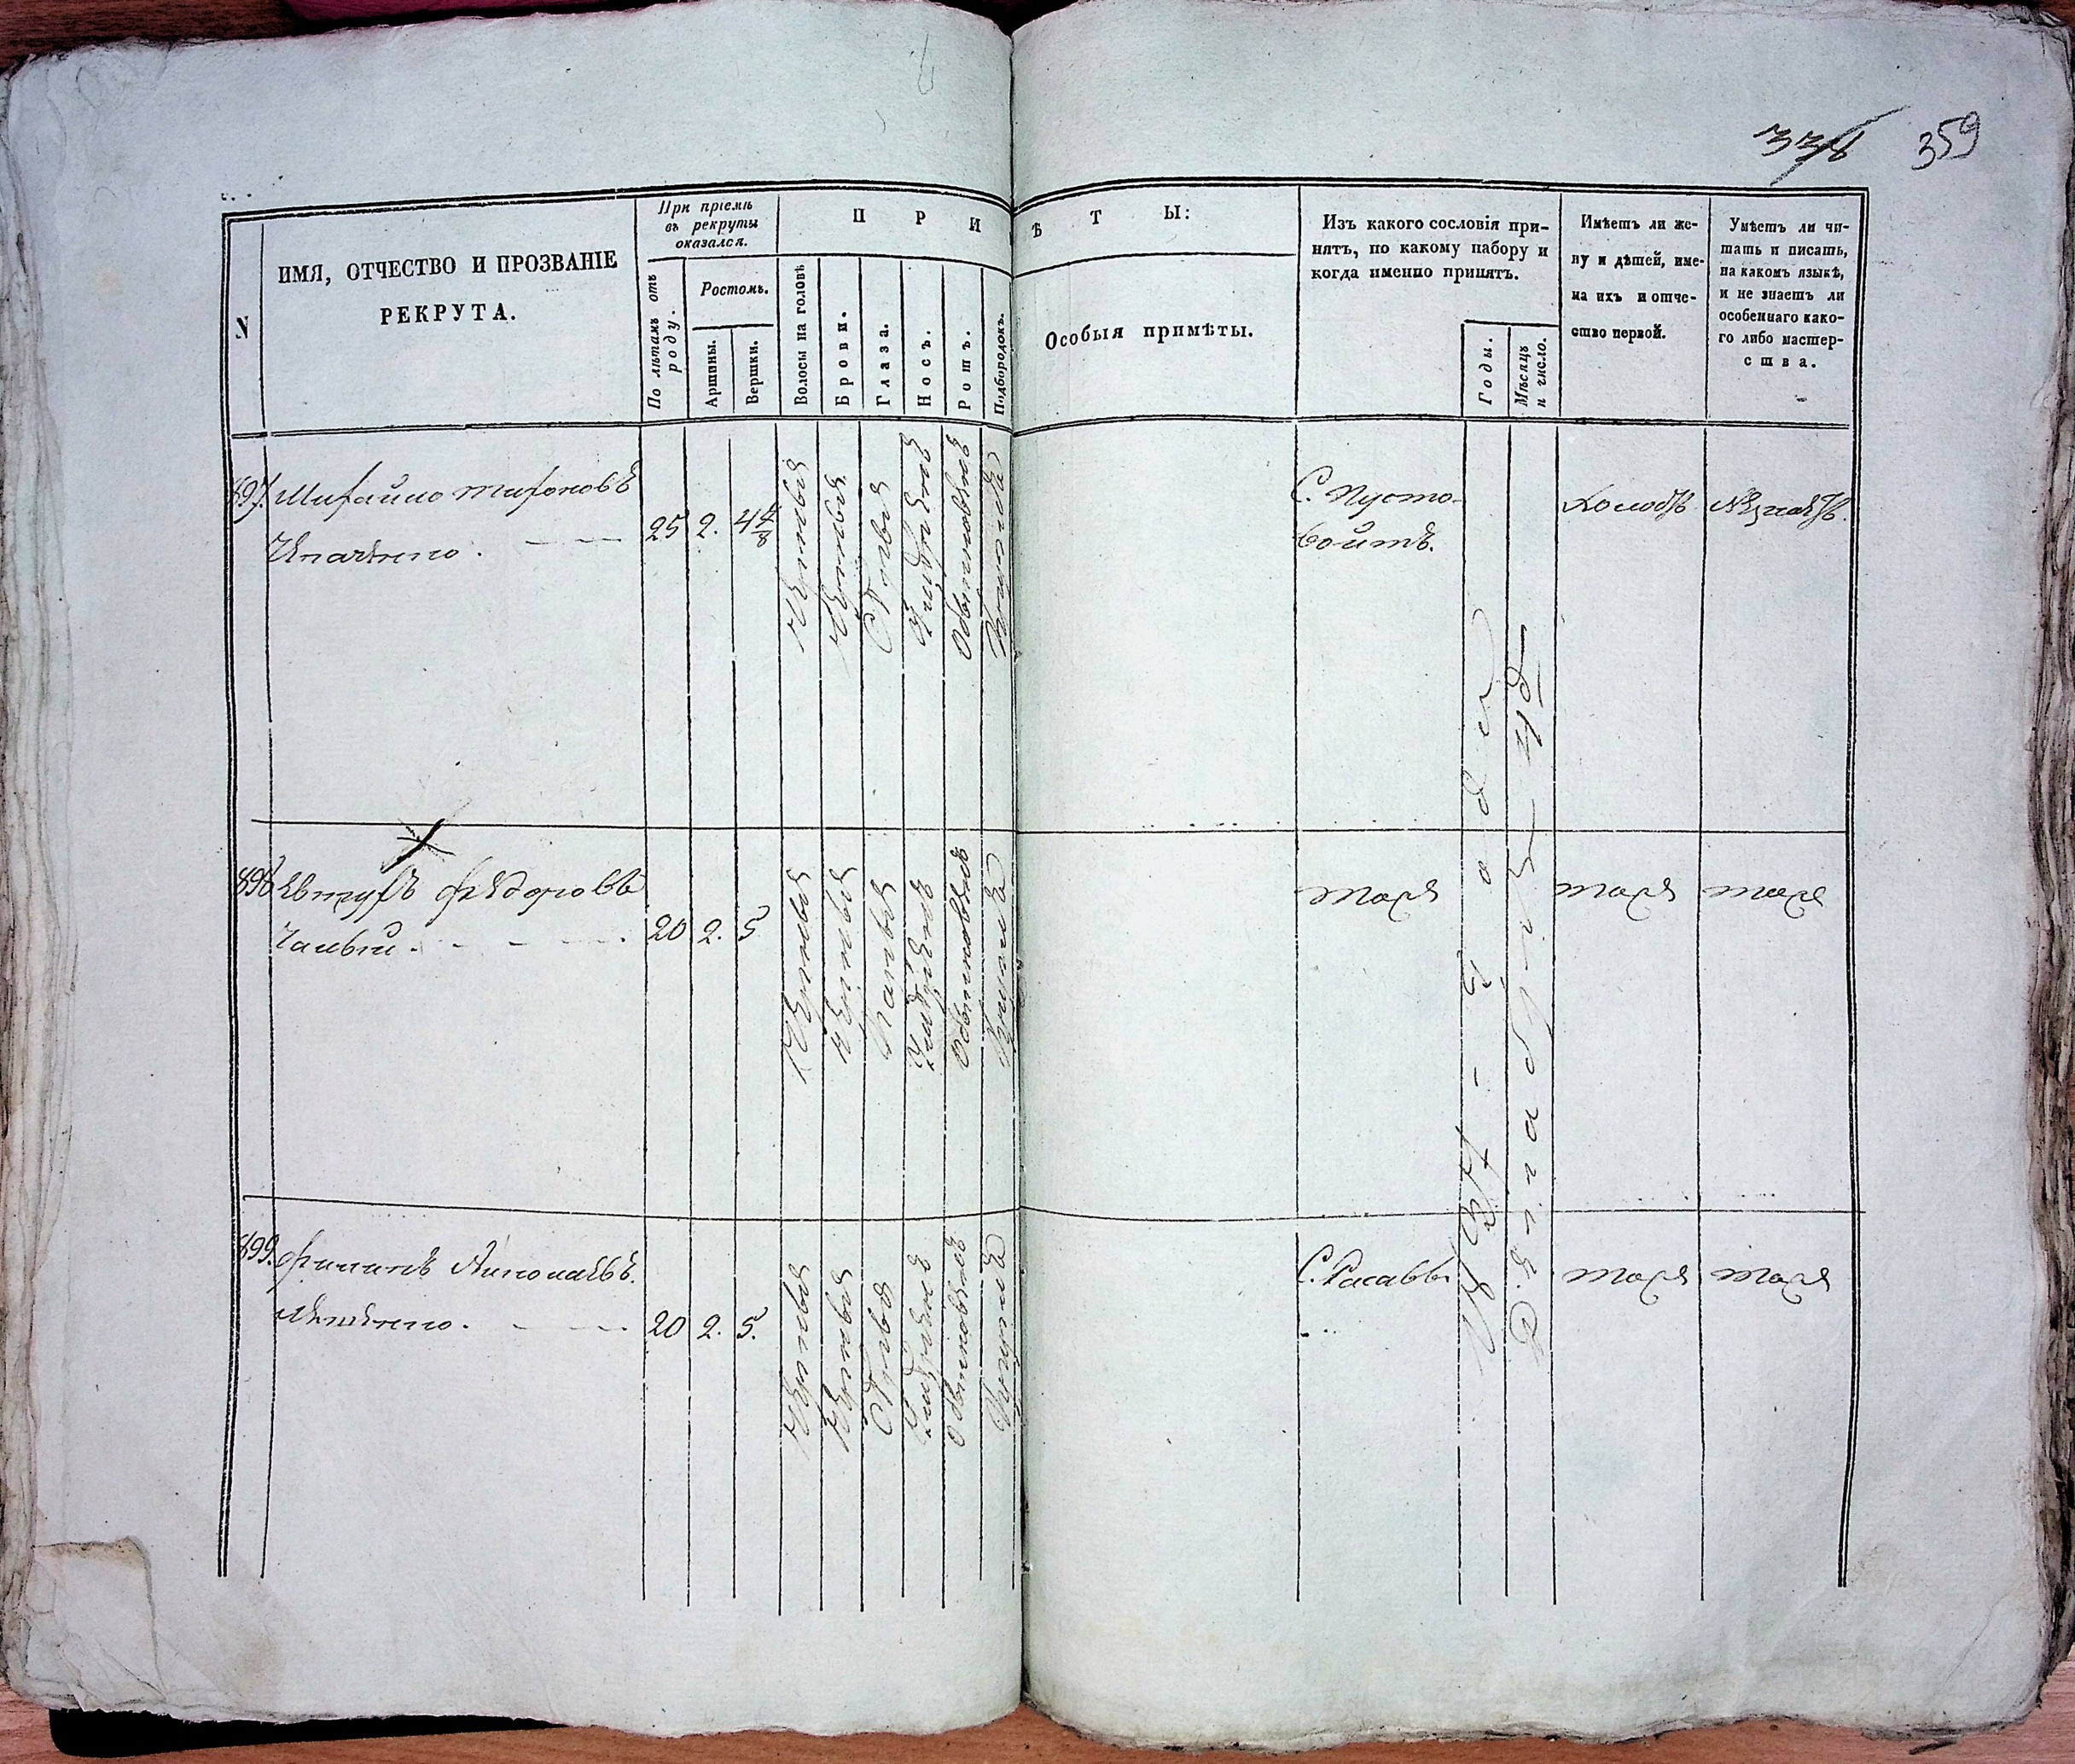 338 359
N
ИМЯ, ОТЧЕСТВО И ПРОЗВАНІЕ
РЕКРУТА.
При пріемѣ
въ рекруты
оказался.
По лѣтамъ отъ
роду.
Ростомъ.
Аршины.
Вершки.
ПРИ
ѢТЫ:
Волосы на головѣ
Брови.
Глаза.
Носъ.
Ротъ.
Подбородокъ.
Особыя примѣты.
Изъ какого сословія при-
нятъ, по какому набору и
когда именно принятъ.
Годы.
Мѣсяцъ
и число.
Имѣетъ ли же-
ну и дѣтей, име-
на ихъ и отче-
ство первой.
Умѣетъ ли чи-
тать и писать,
на какомъ языкѣ,
и не знаетъ ли
особеннаго како-
го либо мастер-
ства.
897. Михайло Тихоновъ
25 2. 4 4/8
Черныя
Черныя
Сѣрыя
Умѣренъ
Обыкновенъ
Круглый
С. Пусто-
войтъ.
Холостъ
Незнаетъ.
898 Евтухъ Федоровъ
Чалый.
20 2. 5
Черныя
Черныя
Карыя
Умѣренъ
Обыкновенъ
Круглый
тоже
тоже
тоже
899. Филипъ Николаевъ.
20 2. 5.
Черныя
Черныя
Сѣрыя
Умѣренъ
Обыкновенъ
Круглый
С. Расавы
тоже
тоже